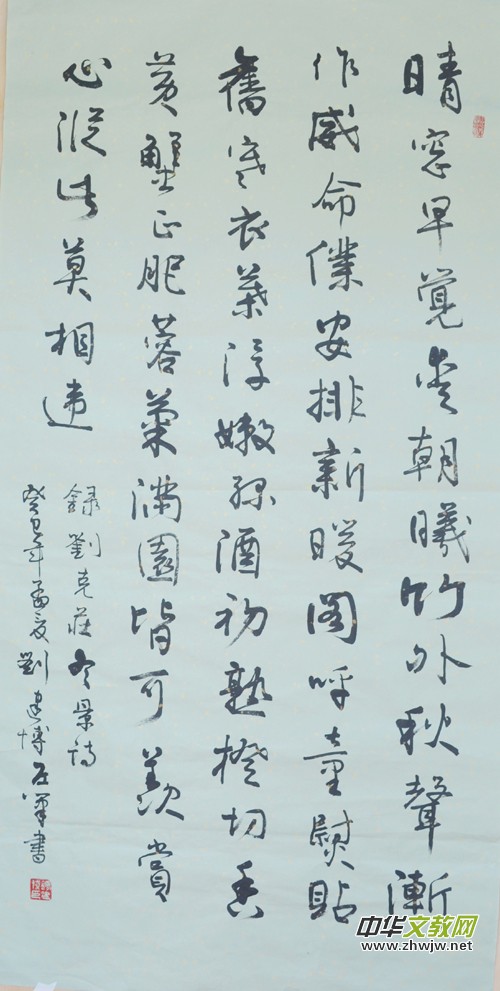 晴窓早覺愛朝曦竹外秋聲漸
作威命僕安排新暖閣呼童熨貼
舊寒衣葉浮嫩綠酒初熟橙切香
黄蟹正肥蓉菊滿園皆可羨賞
心從此莫相違
録劉克莊冬景詩
癸巳年孟夏劉建博左筆書
中华文教网
www.zhwjw.net